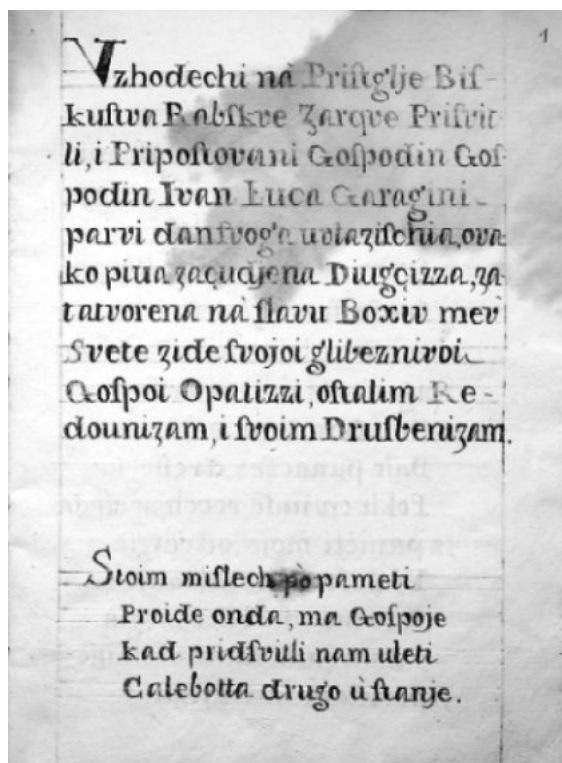 1
Vzhodechi nà Priſtglje Biſ-
kuſtva Rabſkve Zarque Priſvit
li, i Pripoſtovani Goſpodin Goſ-
podin Ivan Luca Garagini
parvi dan ſvoga uvlaziſchia, ova
ko piva zaçudjena Diugcizza, za
tatvorena nà ſlavu Boxiu mev
Svete zide ſvojoi glibeznivoi
Goſpoi Opatizzi, oſtalim Re-
dounizam, i ſvoim Druſbenizam.
Stoim miſlech pò pameti
Proide onda, ma Goſpoje
kad pridſvitli nam uleti
Calebotta drugo ù ſtanje.